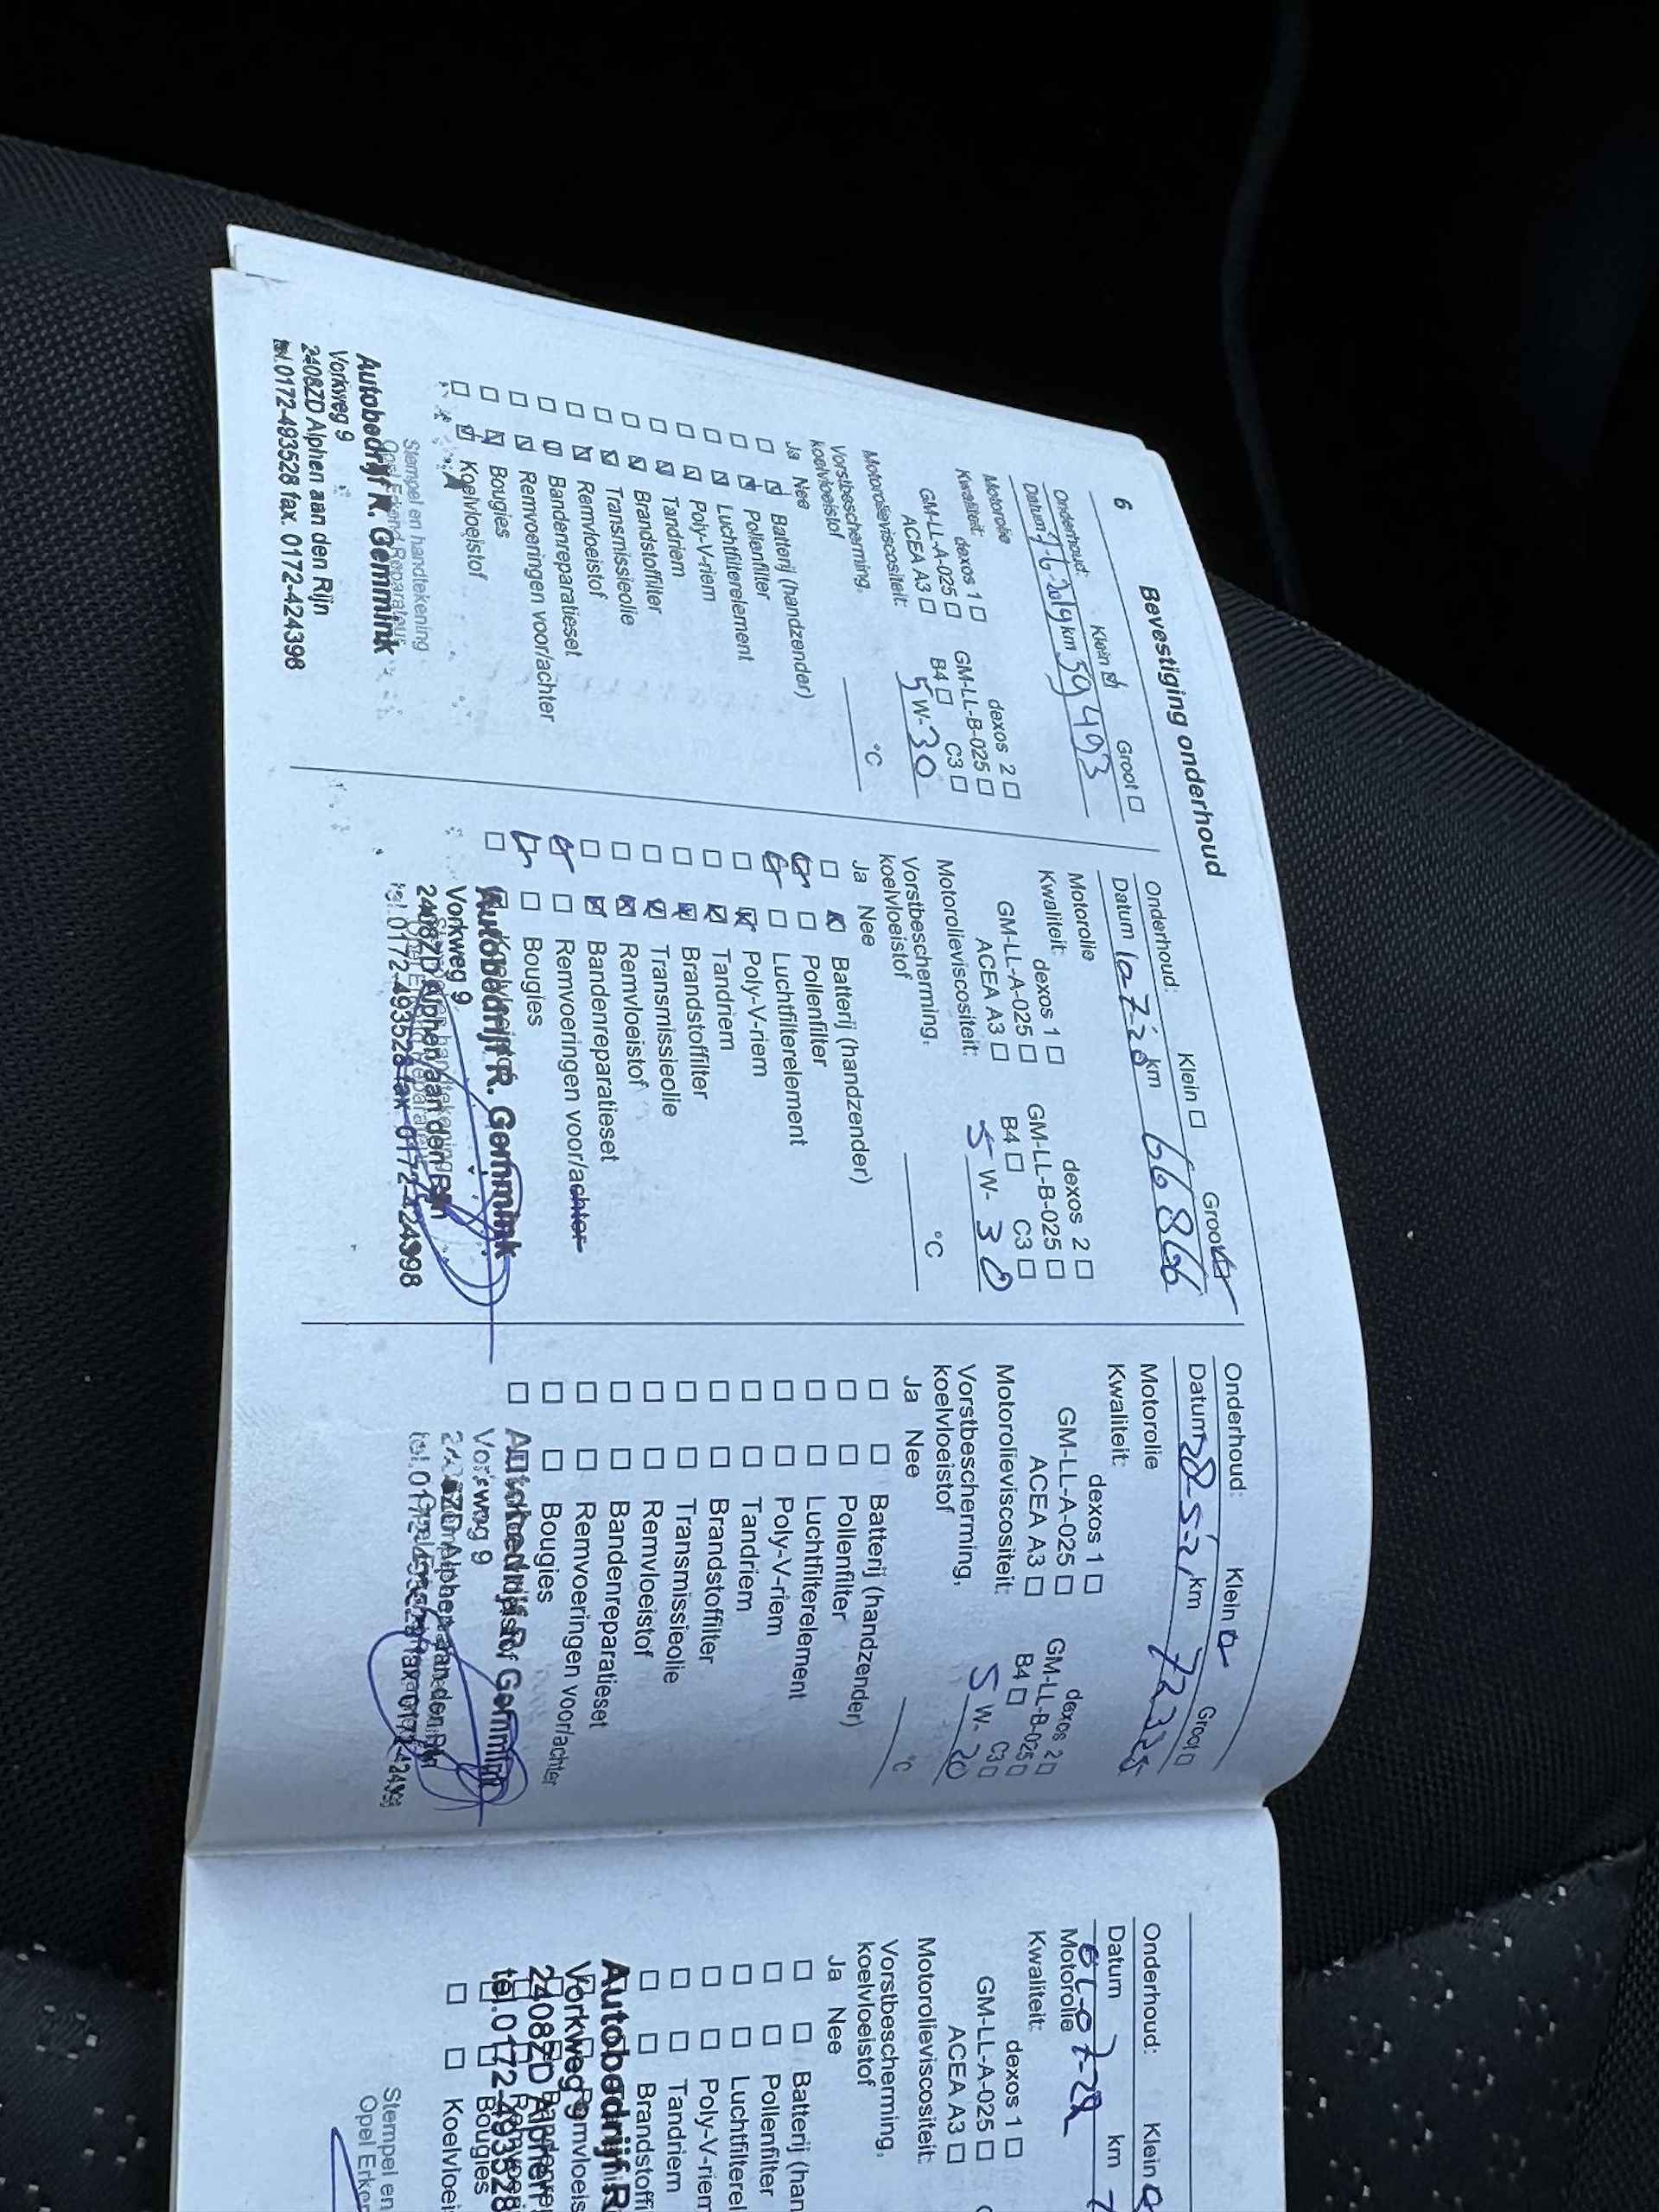 6
Bevestiging onderhoud
Onderhoud: Klein ☑ Groot ☐
Datum 2019 km 59493
Motorolie
Kwaliteit: dexos 1 ☐ dexos 2 ☐
GM-LL-A-025 ☐ GM-LL-B-025 ☐
ACEA A3 ☐ B4 ☐ C3 ☐
Motorolieviscositeit: 5 W-30
Vorstbescherming,
koelvloeistof °C
Ja Nee
☐ ☑ Batterij (handzender)
☐ ☑ Pollenfilter
☐ ☑ Luchtfilterelement
☐ ☑ Poly-V-riem
☐ ☑ Tandriem
☐ ☑ Brandstoffilter
☐ ☑ Transmissieolie
☐ ☑ Remvloeistof
☐ ☑ Bandenreparatieset
☐ ☑ Remvoeringen voor/achter
☐ ☑ Bougies
☐ ☑ Koelvloeistof
Stempel en handtekening
Opel Erkend Reparateur
Autobedrijf R. Gemmink
Vorkweg 9
2408ZD Alphen aan den Rijn
tel.0172-493528 fax. 0172-424398
Onderhoud: Klein ☐ Groot ☑
Datum km 66866
Motorolie
Kwaliteit: dexos 1 ☐ dexos 2 ☐
GM-LL-A-025 ☐ GM-LL-B-025 ☐
ACEA A3 ☐ B4 ☐ C3 ☐
Motorolieviscositeit: 5 W-30
Vorstbescherming,
koelvloeistof °C
Ja Nee
☐ ☑ Batterij (handzender)
☑ ☐ Pollenfilter
☑ ☐ Luchtfilterelement
☐ ☑ Poly-V-riem
☐ ☑ Tandriem
☐ ☑ Brandstoffilter
☐ ☑ Transmissieolie
☐ ☑ Remvloeistof
☐ ☑ Bandenreparatieset
☑ ☐ Remvoeringen voor/achter
☑ ☐ Bougies
Autobedrijf R. Gemmink
Vorkweg 9
2408ZD Alphen aan den Rijn
tel.0172-493528 fax. 0172-424398
Onderhoud: Klein ☑ Groot ☐
Datum 28-5-21 km
Motorolie
Kwaliteit: dexos 1 ☐ dexos 2 ☐
GM-LL-A-025 ☐ GM-LL-B-025 ☐
ACEA A3 ☐ B4 ☐ C3 ☐
Motorolieviscositeit: 5 W-
Vorstbescherming,
koelvloeistof °C
Ja Nee
☐ ☐ Batterij (handzender)
☐ ☐ Pollenfilter
☐ ☐ Luchtfilterelement
☐ ☐ Poly-V-riem
☐ ☐ Tandriem
☐ ☐ Brandstoffilter
☐ ☐ Transmissieolie
☐ ☐ Remvloeistof
☐ ☐ Bandenreparatieset
☐ ☐ Remvoeringen voor/achter
☐ ☐ Bougies
Autobedrijf R. Gemmink
Vorkweg 9
2408ZD Alphen aan den Rijn
Onderhoud: Klein
Datum km
Motorolie
Kwaliteit: dexos 1 ☐
GM-LL-A-025 ☐
ACEA A3 ☐
Motorolieviscositeit:
Vorstbescherming,
koelvloeistof
Ja Nee
☐ ☐ Batterij (han
☐ ☐ Pollenfilter
☐ ☐ Luchtfilterel
☐ ☐ Poly-V-riem
☐ ☐ Tandriem
☐ ☐ Brandstoffi
Autobedrijf R
Vorkweg 9
2408ZD Alphen
tel.0172-493528
☐ ☐ Bougies
☐ ☐ Koelvloei
Stempel en
Opel Erken